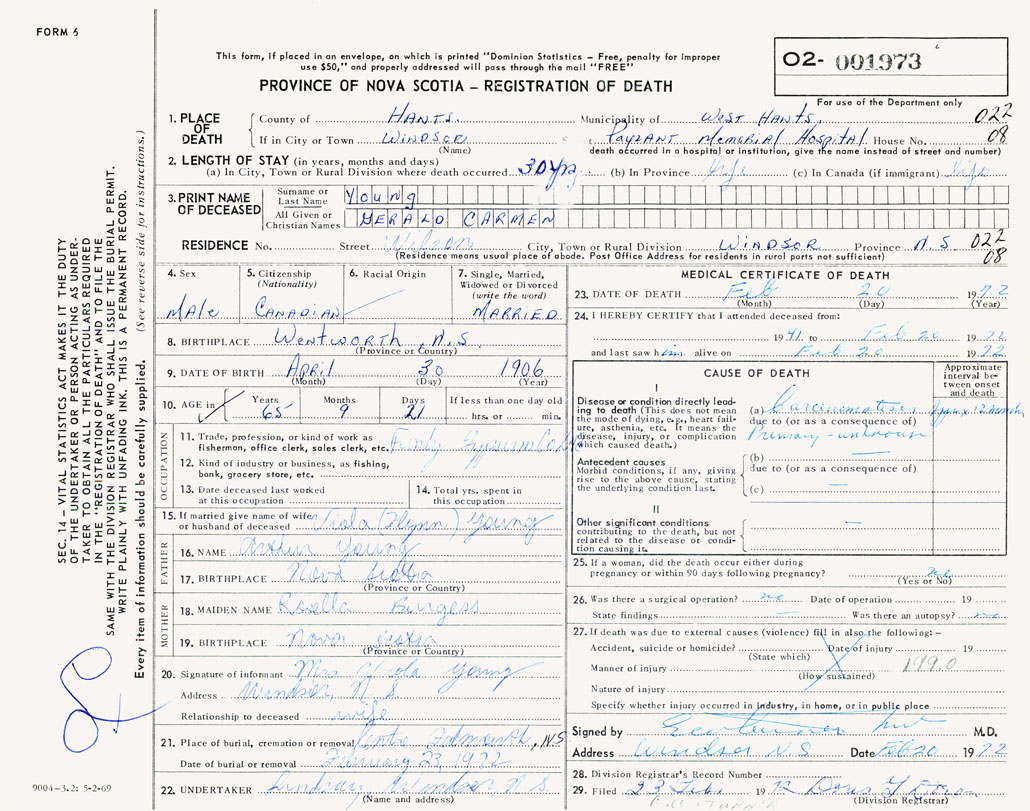 FORM 6
This form, if placed in an envelope, on which is printed "Dominion Statistics – Free, penalty for improper
use $50," and properly addressed will pass through the mail "FREE"
PROVINCE OF NOVA SCOTIA – REGISTRATION OF DEATH
02- 001973
For use of the Department only
SEC. 14 – VITAL STATISTICS ACT MAKES IT THE DUTY
OF THE UNDERTAKER OR PERSON ACTING AS UNDER-
TAKER TO OBTAIN ALL THE PARTICULARS REQUIRED
IN THE "REGISTRATION OF DEATH" AND TO FILE THE
SAME WITH THE DIVISION REGISTRAR WHO SHALL ISSUE THE BURIAL PERMIT.
WRITE PLAINLY WITH UNFADING INK. THIS IS A PERMANENT RECORD.
Every item of information should be carefully supplied. (See reverse side for instructions.)
1. PLACE OF DEATH
County of HANTS. Municipality of WEST HANTS. 022
If in City or Town WINDSOR PAYZANT MEMORIAL HOSPITAL House No. 08
(Name) death occurred in a hospital or institution, give the name instead of street and number)
2. LENGTH OF STAY (in years, months and days)
(a) In City, Town or Rural Division where death occurred 30 yrs. (b) In Province life (c) In Canada (if immigrant) life
3. PRINT NAME OF DECEASED
Surname or Last Name Young
All Given or Christian Names GERALD CARMEN
RESIDENCE No. Street Wilson City, Town or Rural Division WINDSOR Province N.S. 022
(Residence means usual place of abode. Post Office Address for residents in rural parts not sufficient) 08
4. Sex
Male
5. Citizenship
(Nationality)
CANADIAN
6. Racial Origin
7. Single, Married,
Widowed or Divorced
(write the word)
MARRIED
8. BIRTHPLACE Wentworth, N.S.
(Province or Country)
9. DATE OF BIRTH APRIL 30 1906
(Month) (Day) (Year)
10. AGE in
Years Months Days If less than one day old
65 9 21 hrs. or min.
OCCUPATION
11. Trade, profession, or kind of work as
fisherman, office clerk, sales clerk, etc. Fundy Gypsum Co.
12. Kind of industry or business, as fishing,
bank, grocery store, etc.
13. Date deceased last worked
at this occupation
14. Total yrs. spent in
this occupation
15. If married give name of wife
or husband of deceased Viola (Flynn) Young
FATHER
16. NAME Arthur Young
17. BIRTHPLACE Nova Scotia
(Province or Country)
MOTHER
18. MAIDEN NAME Rosella Burgess
19. BIRTHPLACE Nova Scotia
(Province or Country)
20. Signature of informant Mrs Viola Young
Address Windsor, N.S
Relationship to deceased wife
21. Place of burial, cremation or removal Falmouth, NS
Date of burial or removal February 23, 1972
22. UNDERTAKER Lindsay Windsor N.S.
(Name and address)
9004–3.2: 5-2-69
MEDICAL CERTIFICATE OF DEATH
23. DATE OF DEATH Feb 20 1972
(Month) (Day) (Year)
24. I HEREBY CERTIFY that I attended deceased from:
1941 to Feb 20 1972
and last saw him alive on Feb 20 1972
CAUSE OF DEATH
Approximate
interval be-
tween onset
and death
I
Disease or condition directly lead-
ing to death (This does not mean
the mode of dying, e.g., heart fail-
ure, asthenia, etc. It means the
disease, injury, or complication
which caused death.)
(a) Carcinomatosis 12 months
due to (or as a consequence of)
Primary - unknown
Antecedent causes
Morbid conditions, if any, giving
rise to the above cause, stating
the underlying condition last.
(b) —
due to (or as a consequence of)
(c) —
II
Other significant conditions
contributing to the death, but not
related to the disease or condi-
tion causing it.
—
25. If a woman, did the death occur either during
pregnancy or within 90 days following pregnancy? no
(Yes or No)
26. Was there a surgical operation? no Date of operation 19
State findings — Was there an autopsy? no
27. If death was due to external causes (violence) fill in also the following: –
Accident, suicide or homicide? Date of injury 19
(State which)
Manner of injury 199.0
(How sustained)
Nature of injury
Specify whether injury occurred in industry, in home, or in public place
Signed by M.D.
Address Windsor N.S Date Feb 20 1972
28. Division Registrar's Record Number
29. Filed 23 Feb 1972 Doris
(Division Registrar)